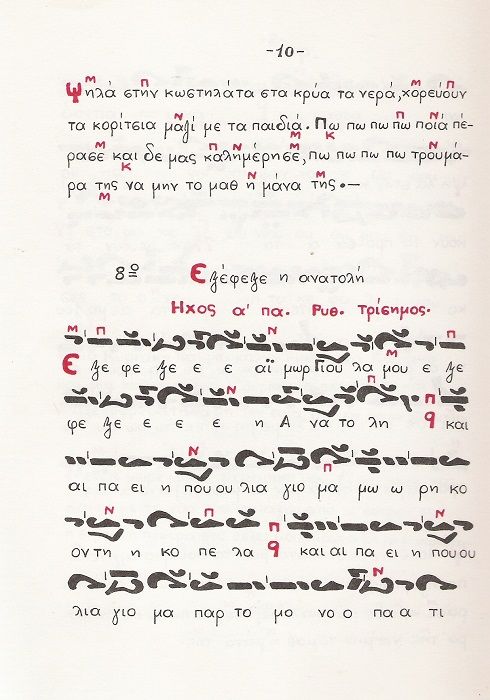 -10-
Ψηλά στην κωστηλάτα στα κρύα τα νερά, χορεύουν
τα κορίτσια μαζί με τα παιδιά. Πω πω πω πω ποιά πέ-
ρασε και δε μας καλημέρησε, πω πω πω πω τρουμά-
ρα της να μην το μαθ η μάνα της.—
8ο Εξέφεξε η ανατολή
Ηχος α' πα. Ρυθ. τρίσημος.
Ε ξε φε ξε ε ε αϊ μωρ Γιου λα μου ε ξε
φε ξε ε ε ε η Α να το λη και
αι πα ει η που ου λια γιο μα μω ω ρη κο
ον τη η κο πε λα και αι πα ει η που ου
λια γιο μα παρ το μο νο ο πα α τι